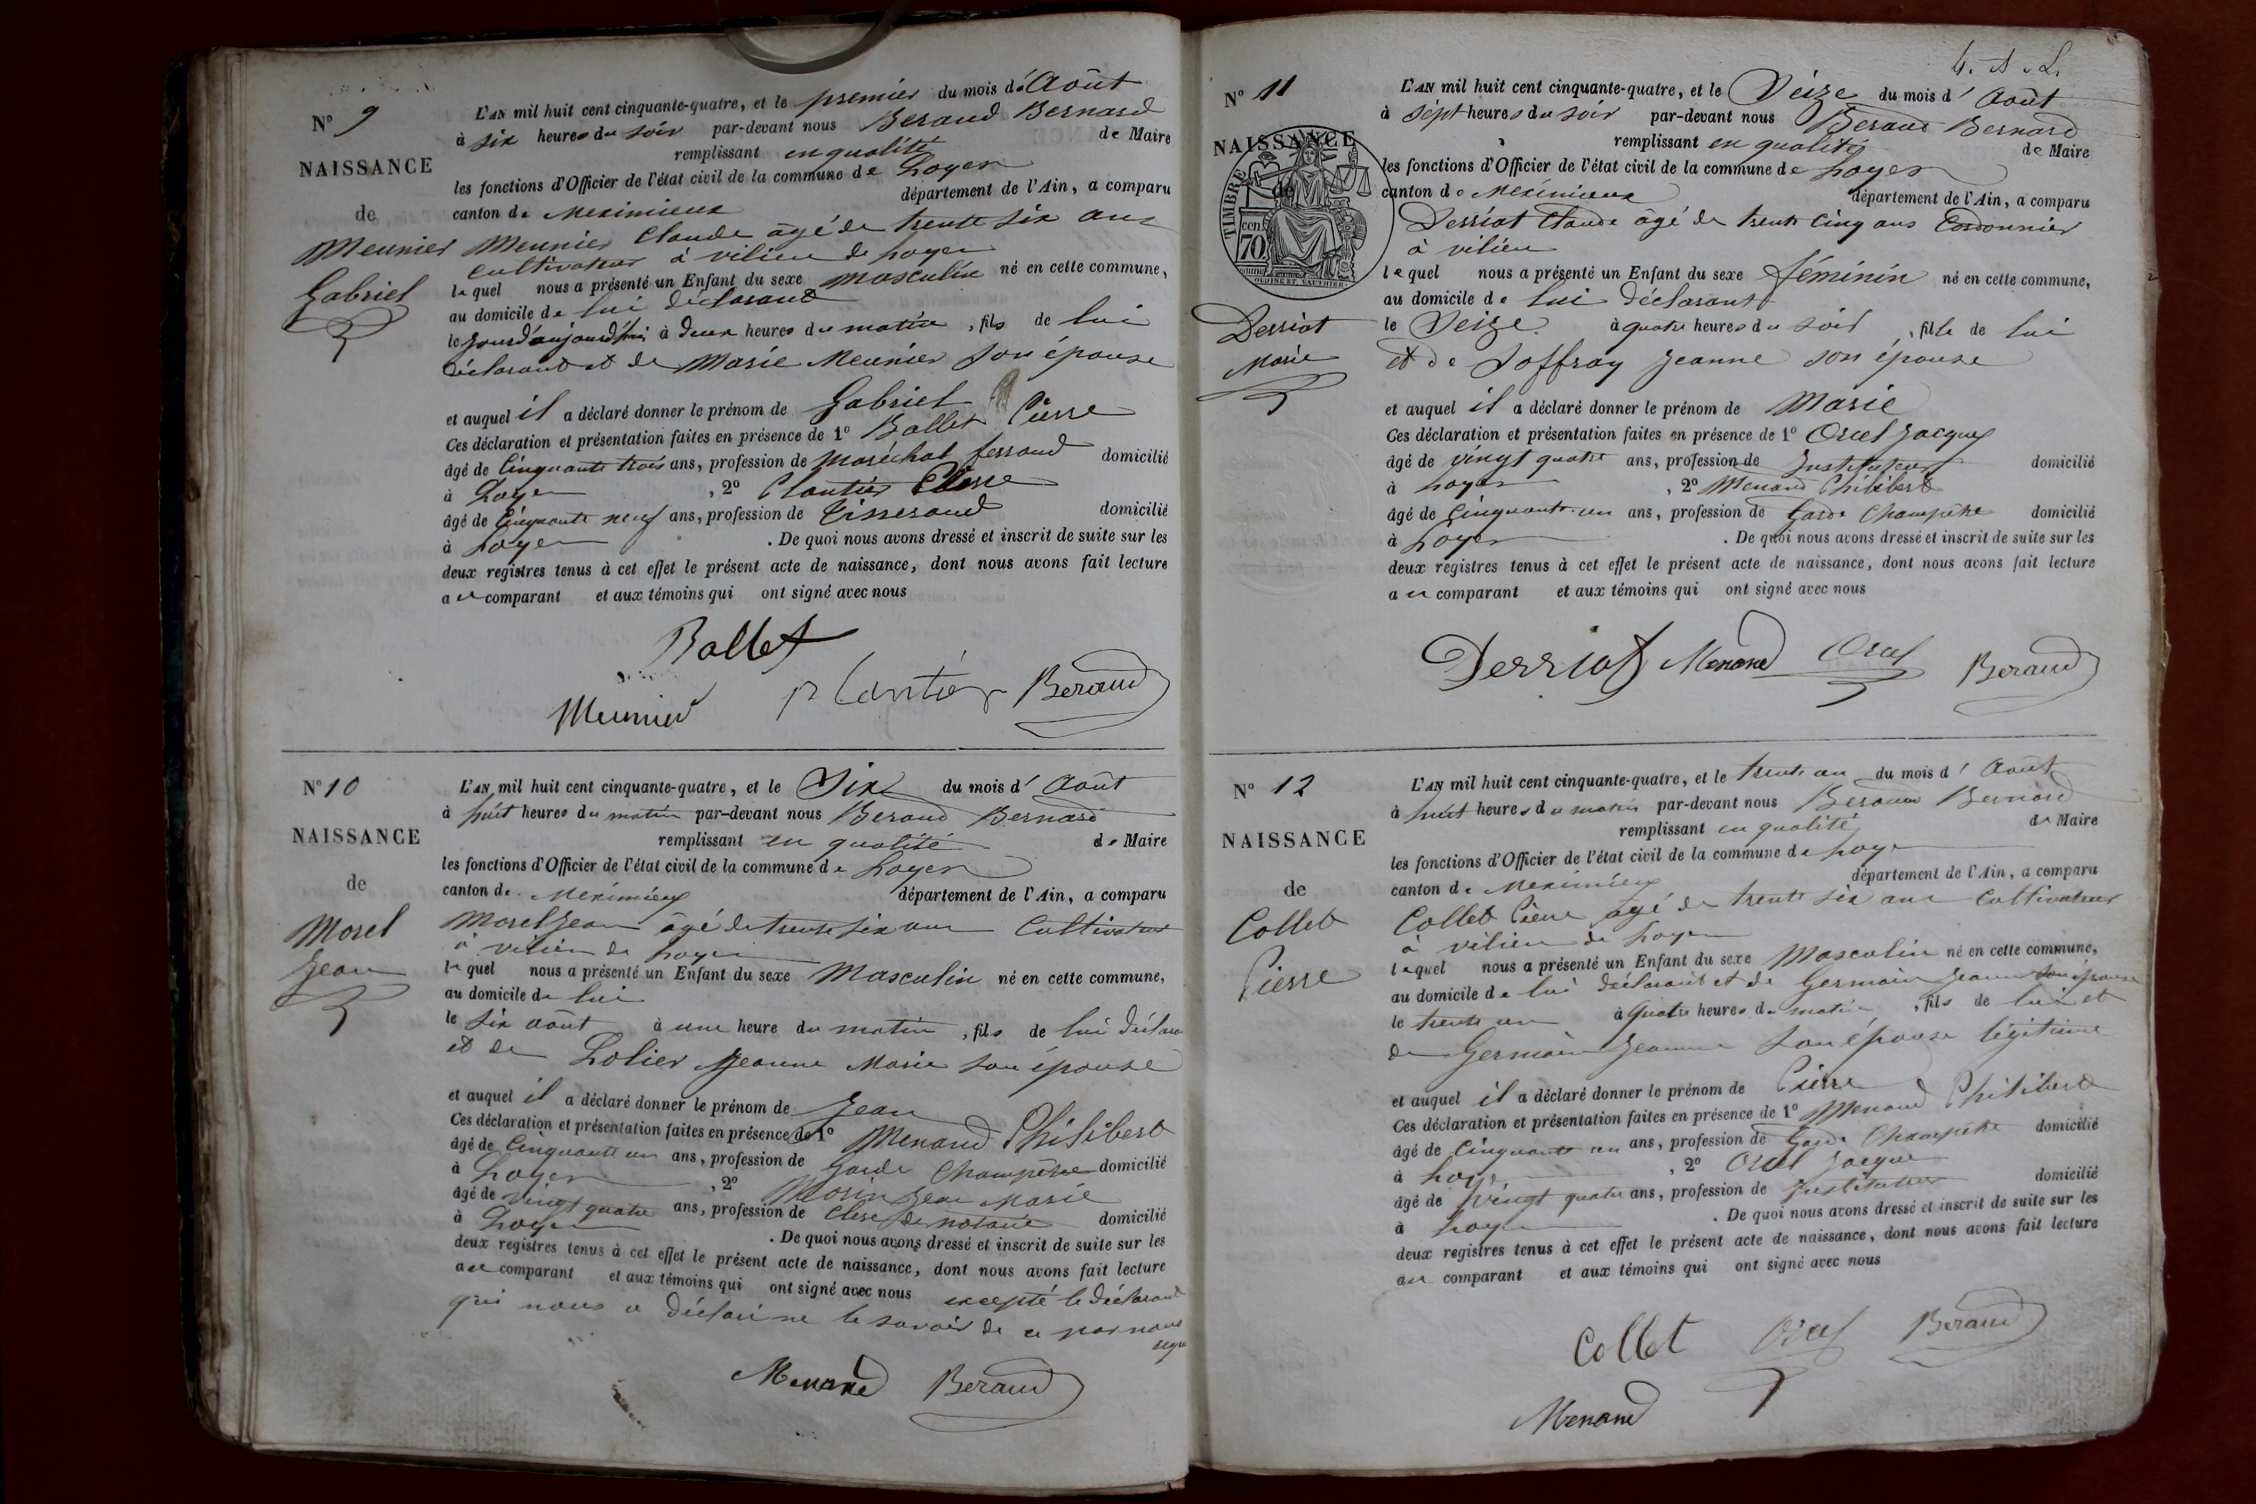 N° 9
NAISSANCE
de
Meunier
Gabriel
L'AN mil huit cent cinquante-quatre, et le premier du mois d'Août
à six heures du soir par-devant nous Beraud Bernard
remplissant en qualité de Maire
les fonctions d'Officier de l'état civil de la commune de Loyes
canton de Meximieux département de l'Ain, a comparu
Meunier Claude âgé de trente six ans
cultivateur à vilieu de Loyes
lequel nous a présenté un Enfant du sexe masculin né en cette commune,
au domicile de lui déclarant
le jourd'aujourd'hui à deux heures du matin, fils de lui
déclarant et de Marie Meunier son épouse
et auquel il a déclaré donner le prénom de Gabriel
Ces déclaration et présentation faites en présence de 1° Ballet Pierre
âgé de Cinquante trois ans, profession de maréchal ferrand domicilié
à Loyes, 2° Plantier Pierre
âgé de Cinquante neuf ans, profession de Tisserand domicilié
à Loyes. De quoi nous avons dressé et inscrit de suite sur les
deux registres tenus à cet effet le présent acte de naissance, dont nous avons fait lecture
au comparant et aux témoins qui ont signé avec nous
Ballet
Meunier Plantier Beraud
N° 10
NAISSANCE
de
Morel
Jean
L'AN mil huit cent cinquante-quatre, et le Six du mois d'Août
à huit heures du matin par-devant nous Beraud Bernard
remplissant en qualité de Maire
les fonctions d'Officier de l'état civil de la commune de Loyes
canton de Meximieux département de l'Ain, a comparu
Morel Jean âgé de trente six ans Cultivateur
à vilieu de Loyes
lequel nous a présenté un Enfant du sexe Masculin né en cette commune,
au domicile de lui
le six août à une heure du matin, fils de lui déclarant
et de Lolier Jeanne Marie son épouse
et auquel il a déclaré donner le prénom de Jean
Ces déclaration et présentation faites en présence de 1° Menand Philibert
âgé de Cinquante un ans, profession de Garde Champêtre domicilié
à Loyes, 2° Morin Jean Marie
âgé de vingt quatre ans, profession de Clerc de notaire domicilié
à Loyes. De quoi nous avons dressé et inscrit de suite sur les
deux registres tenus à cet effet le présent acte de naissance, dont nous avons fait lecture
au comparant et aux témoins qui ont signé avec nous excepté le déclarant
qui nous a déclaré ne le savoir de ce par nous
requis
Menand Beraud
N° 11
NAISSANCE
de
TIMBRE
70 cen
Derriot
Marie
L'AN mil huit cent cinquante-quatre, et le Seize du mois d'Août
à sept heures du soir par-devant nous Beraud Bernard
remplissant en qualité de Maire
les fonctions d'Officier de l'état civil de la commune de Loyes
canton de Meximieux département de l'Ain, a comparu
Derriot Claude âgé de trente cinq ans Cordonnier
à vilieu
lequel nous a présenté un Enfant du sexe féminin né en cette commune,
au domicile de lui déclarant
le Seize à quatre heures du soir, fille de lui
et de Joffray Jeanne son épouse
et auquel il a déclaré donner le prénom de Marie
Ces déclaration et présentation faites en présence de 1° Orcel Jacques
âgé de vingt quatre ans, profession de Instituteur domicilié
à Loyes, 2° Menand Philibert
âgé de Cinquante un ans, profession de Garde Champêtre domicilié
à Loyes. De quoi nous avons dressé et inscrit de suite sur les
deux registres tenus à cet effet le présent acte de naissance, dont nous avons fait lecture
au comparant et aux témoins qui ont signé avec nous
Derriot Menand Orcel Beraud
N° 12
NAISSANCE
de
Collet
Pierre
L'AN mil huit cent cinquante-quatre, et le trente un du mois d'Août
à huit heures du matin par-devant nous Beraud Bernard
remplissant en qualité de Maire
les fonctions d'Officier de l'état civil de la commune de Loyes
canton de Meximieux département de l'Ain, a comparu
Collet Pierre âgé de trente six ans Cultivateur
à vilieu de Loyes
lequel nous a présenté un Enfant du sexe Masculin né en cette commune,
au domicile de lui déclarant et de Germain Jeanne son épouse
le trente un à quatre heures du matin, fils de lui et
de Germain Jeanne son épouse légitime
et auquel il a déclaré donner le prénom de Pierre
Ces déclaration et présentation faites en présence de 1° Menand Philibert
âgé de Cinquante un ans, profession de Garde Champêtre domicilié
à Loyes, 2° Orcel Jacques
âgé de vingt quatre ans, profession de Instituteur domicilié
à Loyes. De quoi nous avons dressé et inscrit de suite sur les
deux registres tenus à cet effet le présent acte de naissance, dont nous avons fait lecture
au comparant et aux témoins qui ont signé avec nous
Collet Orcel Beraud
Menand